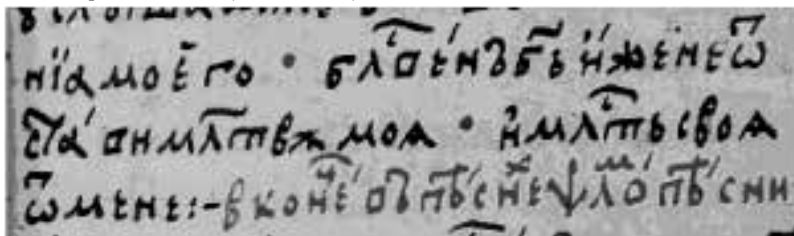 нїа моего · бл҃венъ б҃ъ и́же не ѿ
ста́ви мл҃твѫ моѧ · и́ мл҃ть своѧ
ѿ мене :~ в коне́ⷰ҇ въ пѣ́снеⷯ ѱало́ⷨ пѣ́сни